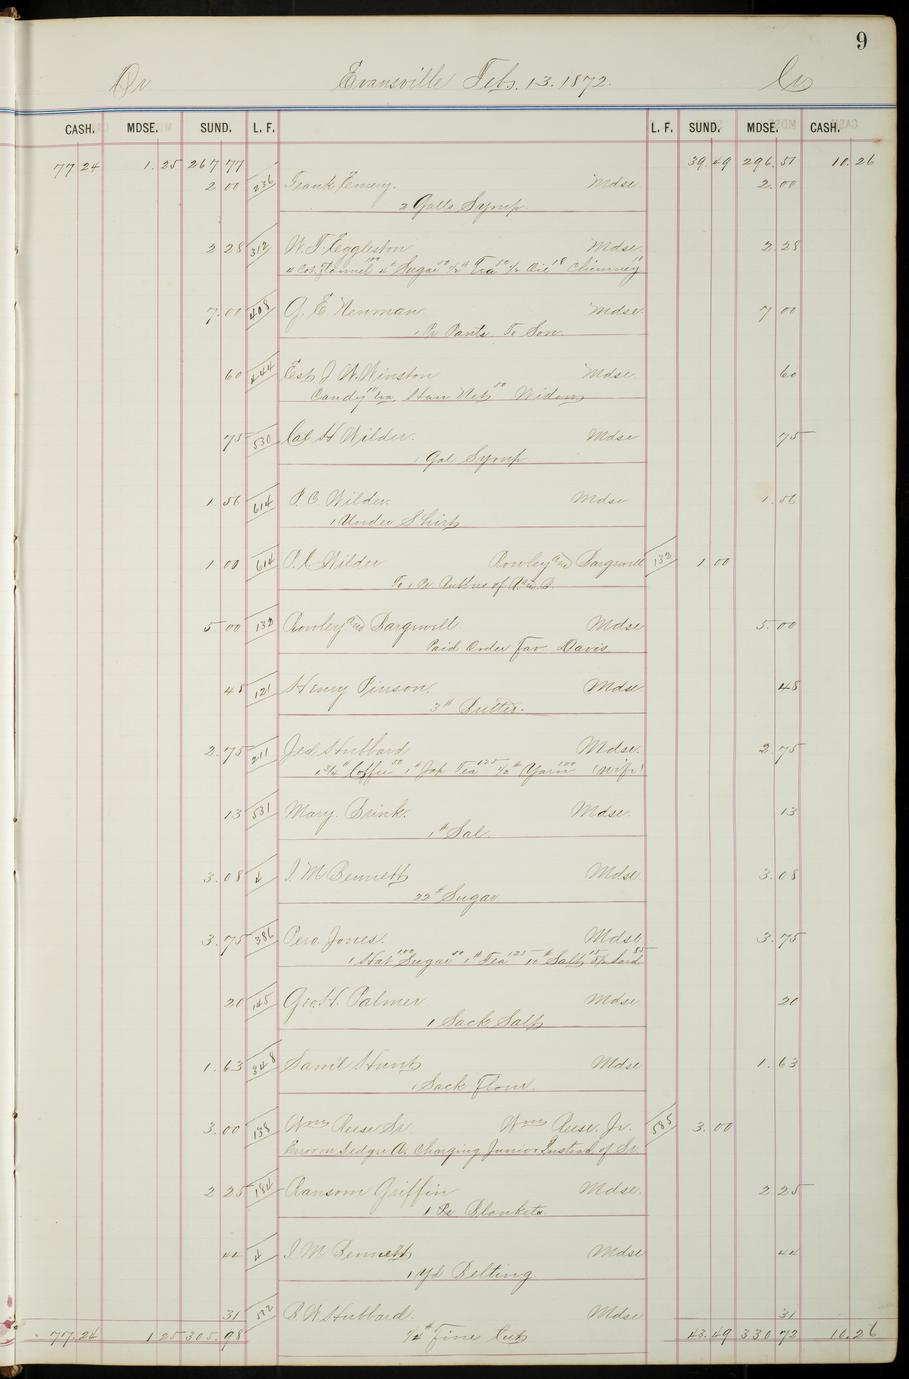 9
Dr Evansville Feb. 13. 1872. Cr
CASH. MDSE. SUND. L. F. L. F. SUND. MDSE. CASH.
77 24 1.25 267 77 39.49 296.51 10.26
2 00 236 Frank Emery. Mdse 2.00
2 Galls Syrup
2 28 312 W. T. Eggleston Mdse. 2.28
Flannel 100 4# Sugar 50 1/2# Tea 50 1/2 Oil 18 Chimney 10
7.00 408 G. E. Newman Mdse. 7 00
1 Pr Pants To Son.
60 444 Est J. W. Winston Mdse. 60
Candy 10 Nets 50 Widow
75 530 Cal H Wilder. Mdse 75
1 Gal Syrup
1.56 614 P. C. Wilder. Mdse 1.56
1 Under Shirt
1 00 614 P. C. Wilder Rowley and 132 1 00
To 1 Pr of R. and B.
5.00 132 Rowley and Mdse 5.00
Paid Order Fav. Davis
48 121 Henry Pinson. Mdse 48
3# Butter.
2.75 211 Jed Hubbard Mdse. 2.75
1 3/4# Coffee 50 1# Jap Tea 125 1/2# Yarn 100 (wife)
13 531 Mary. Brink. Mdse. 13
1# Sal.
3.08 4 I. M Bennett Mdse. 3.08
22# Sugar
3.75 386 Jones. Mdse 3.75
1 Hat 100 Sugar 50 1# Tea 125 10# Salt 15 Lard 85
20 145 Geo. H. Palmer Mdse 20
1 Sack Salt
1.63 348 Sam'l Hunt Mdse 1.63
1 Sack Flour.
3.00 138 Wm Reese Sr. Wm Reese, Jr. 585 3.00
Error in Ledger A. Charging Junior Instead of Sr
2 25 184 Ransom Griffin Mdse. 2 25
1 Pr Blankets
44 4 I. M Bennett Mdse 44
1 Yd Belting.
31 572 B. W. Hubbard. Mdse 31
77.24 1 25 305.98 1/4# Fine Cut 43.49 330 72 10.26